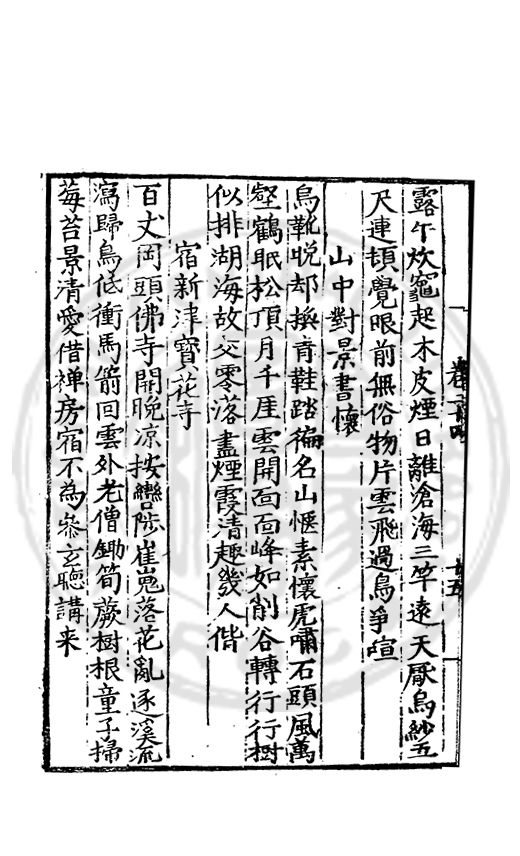 露午炊龕起木皮煙日離滄海三竿遠天厭烏紗五
尺連頓覺眼前無俗物片雲飛過鳥爭喧
山中對景書懷
烏靴悅却換青鞋踏徧名山愜素懷虎嘯石頭風萬
壑鶴眠松頂月千厓雲開面面峰如削谷轉行行樹
似排湖海故交零落盡煙霞清趣幾人偕
宿新津寶花寺
百丈岡頭佛寺開晚凉按轡陟崔嵬落花亂逐溪流
瀉歸鳥低衝馬箭回雲外老僧鋤筍蕨樹根童子掃
莓苔景清愛借禅房宿不為叅玄聽講来